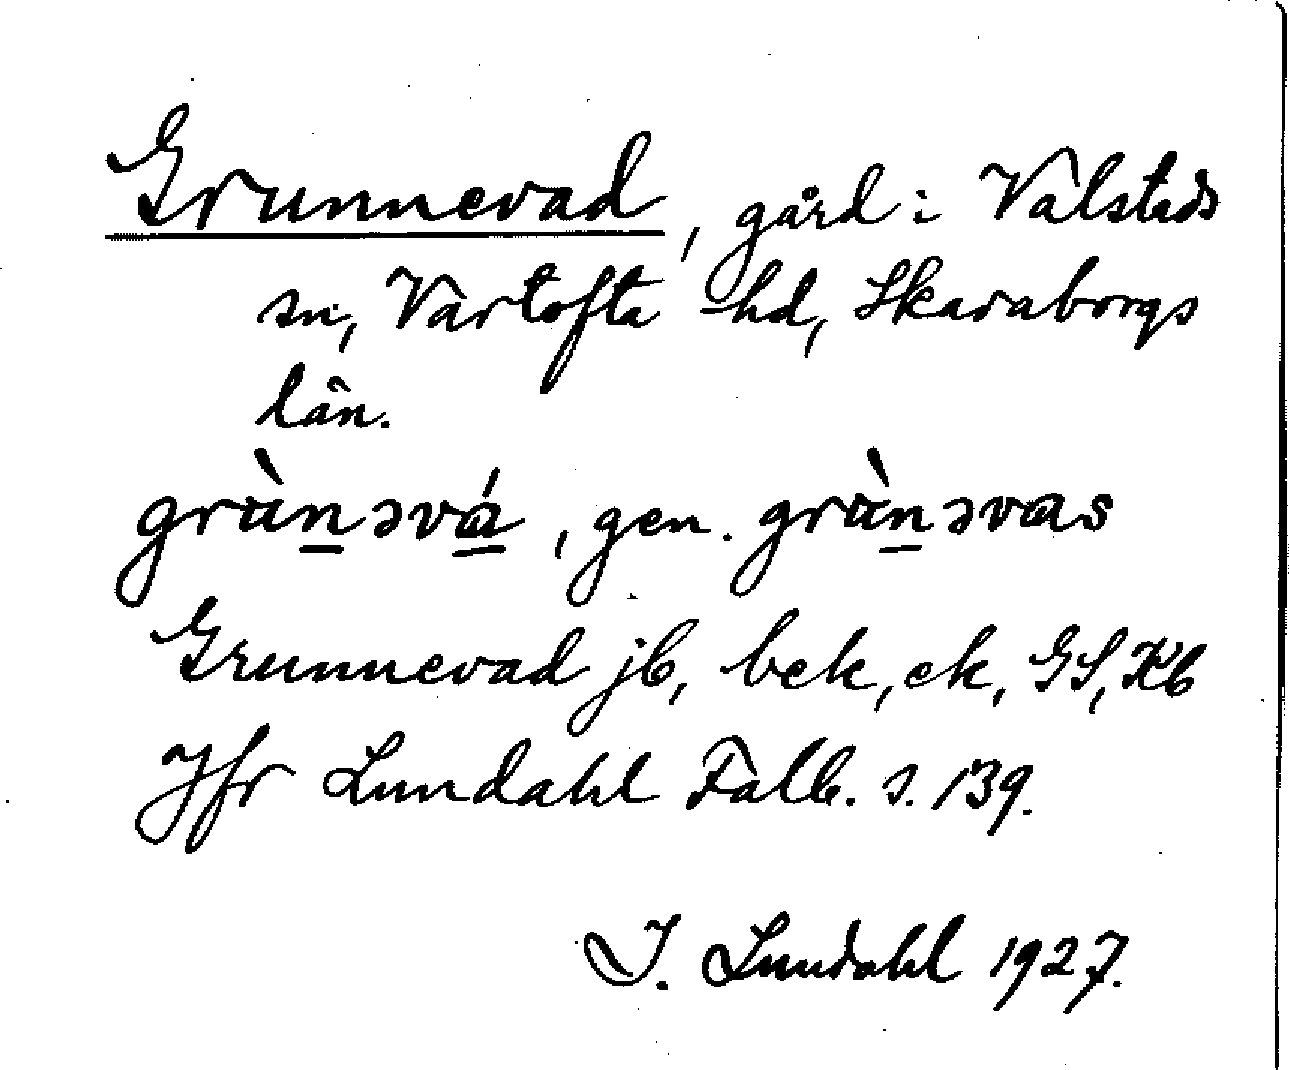 Grunnevad, gård i Valstads
sn, Vartofta hd, Skaraborgs
län.
grùnəvá, gen. grùnəvas
Grunnevad jb, bek, ek, GS, Kb
Jfr Lundahl Falb. s. 139.
I. Lundahl 1927.